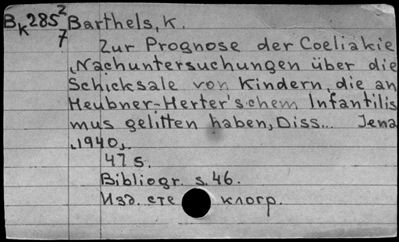 Bk285 2/7 Barthels, K.
Zur Prognose der Coeliakie
„Nachuntersuchungen über die
Schicksale von Kindern, die an
Heubner-Herter'schem Infantilis
mus gelitten haben, Diss... Jena
„1940„.
47 s.
Bibliogr. s. 46.
Изд. сте клогр.